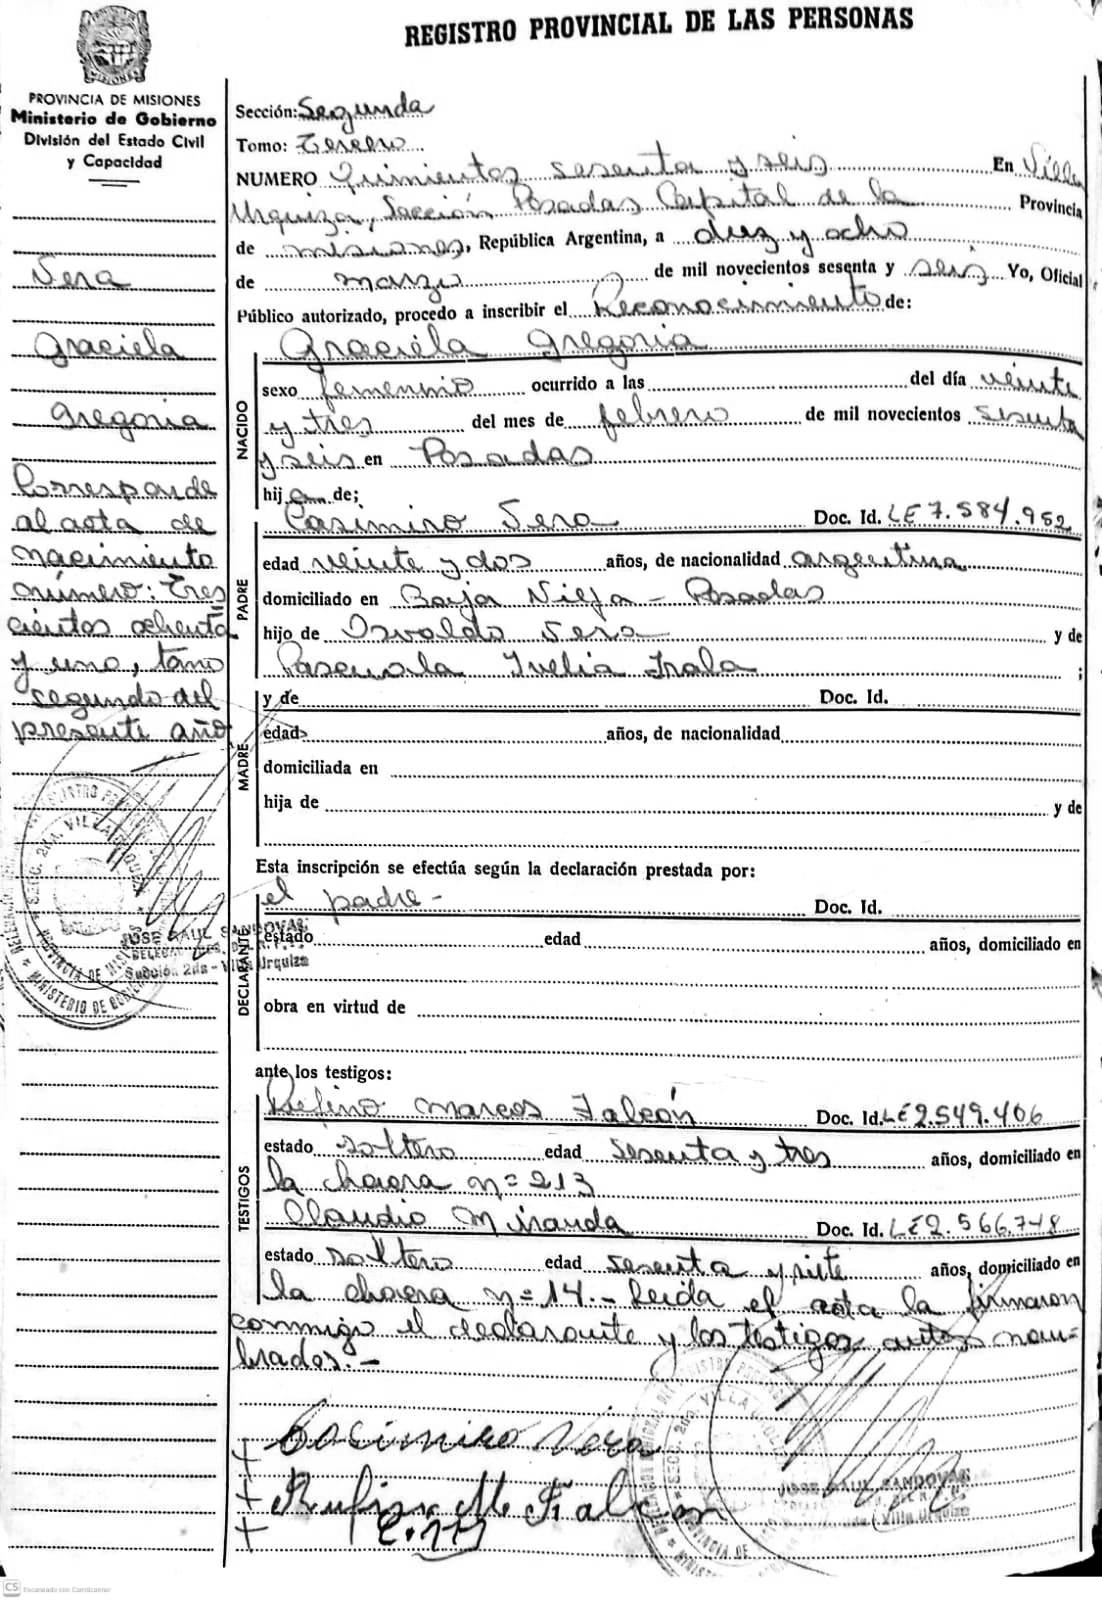 REGISTRO PROVINCIAL DE LAS PERSONAS
PROVINCIA DE MISIONES
Ministerio de Gobierno
División del Estado Civil
y Capacidad
Vera
Graciela
Gregoria
Corresponde
al acta de
nacimiento
número: Tres
cientos ochenta
y uno, tomo
segundo del
presente año
Sección: Segunda
Tomo: Tercero
NUMERO Quinientos sesenta y seis En Villa
Urquiza, Sección Posadas Capital de la Provincia
de misiones, República Argentina, a diez y ocho
de marzo de mil novecientos sesenta y seis Yo, Oficial
Público autorizado, procedo a inscribir el Reconocimiento de:
NACIDO
Graciela Gregoria
sexo femenino ocurrido a las del día veinte
y tres del mes de febrero de mil novecientos sesenta
y seis en Posadas
hija de;
PADRE
Casimiro Vera Doc. Id. LE 7.584.952
edad veinte y dos años, de nacionalidad argentina
domiciliado en Baja Vieja - Posadas
hijo de Osvaldo Vera y de
Pascuala Ivelia Irala ;
MADRE
y de Doc. Id.
edad años, de nacionalidad
domiciliada en
hija de y de
Esta inscripción se efectúa según la declaración prestada por:
DECLARANTE
el padre - Doc. Id.
estado edad años, domiciliado en
obra en virtud de
JOSE RAUL SANDOVAL
Sección 2da - Villa Urquiza
ante los testigos:
TESTIGOS
Rufino Marcos Falcón Doc. Id. LE 2.549.406
estado soltero edad sesenta y tres años, domiciliado en
la chacra n= 213
Claudio Miranda Doc. Id. LE 2.566.748
estado soltero edad sesenta y siete años, domiciliado en
la chacra n= 14.- Leida el acta la firmaron
conmigo el declarante y los testigos antes nom=
brados.-
Casimiro Vera
Rufino M Falcon
C. M
JOSE RAUL SANDOVAL
Villa Urquiza
CS Escaneado con CamScanner